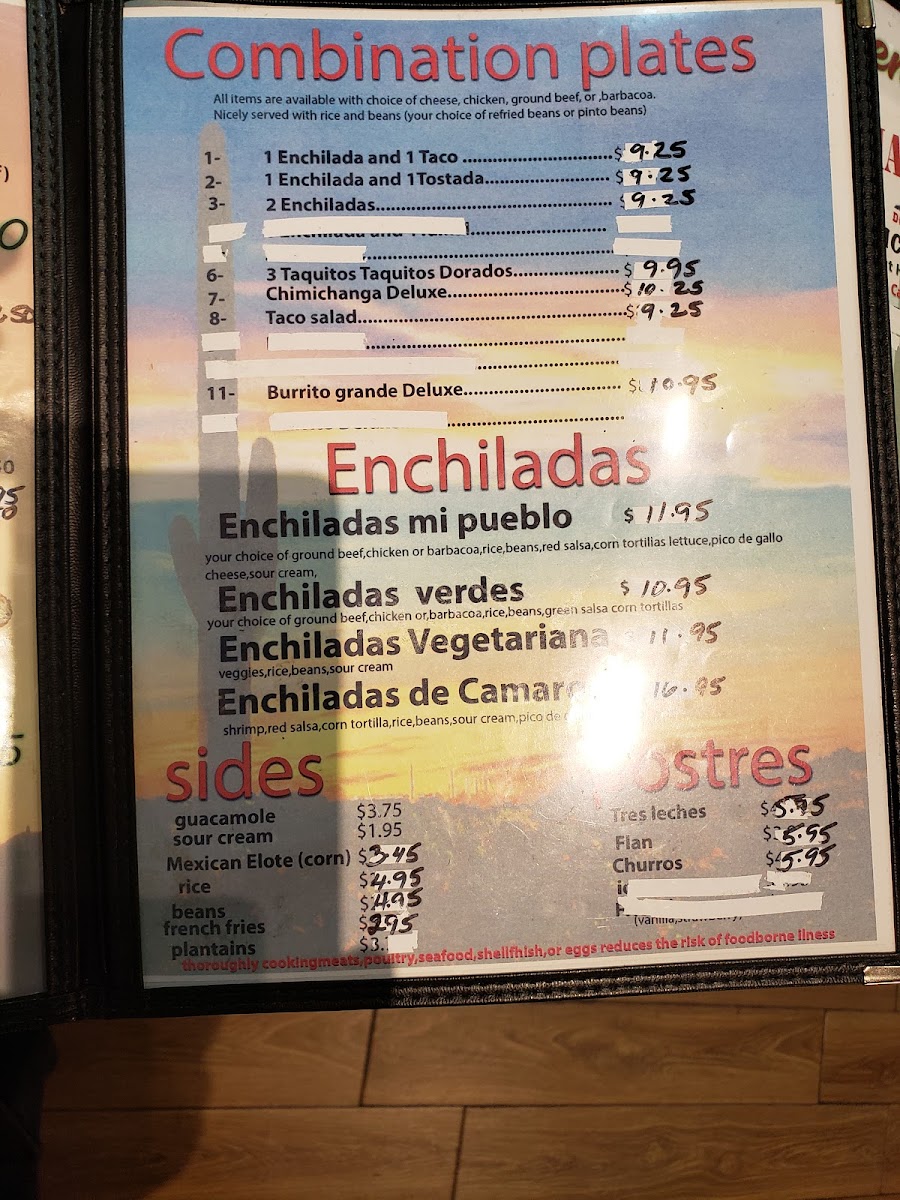 Combination plates
All items are available with choice of cheese, chicken, ground beef, or ,barbacoa.
Nicely served with rice and beans (your choice of refried beans or pinto beans)
1- 1 Enchilada and 1 Taco ................................ $ 9.25
2- 1 Enchilada and 1Tostada........................... $ 9.25
3- 2 Enchiladas.................................................... $ 9.25
6- 3 Taquitos Taquitos Dorados....................... $ 9.95
7- Chimichanga Deluxe..................................... $ 10.25
8- Taco salad........................................................ $ 9.25
11- Burrito grande Deluxe.................................. $ 10.95
Enchiladas
Enchiladas mi pueblo $ 11.95
your choice of ground beef,chicken or barbacoa,rice,beans,red salsa,corn tortilias lettuce,pico de gallo
cheese,sour cream,
Enchiladas verdes $ 10.95
your choice of ground beef,chicken or,barbacoa,rice,beans,green salsa corn tortillas
Enchiladas Vegetariana 11.95
veggles,rice,beans,sour cream
Enchiladas de 16.95
shrimp,red salsa,corn tortilla,rice,beans,sour cream,pico de
sides
guacamole $3.75
sour cream $1.95
Mexican Elote (corn) $3.45
rice $4.95
beans $4.95
french fries $2.95
plantains $3.
Tres leches $5.95
Flan $5.95
Churros $5.95
thoroughly cookingmeats,poultry,seafood,shellfhish,or eggs reduces the risk of foodborne liness